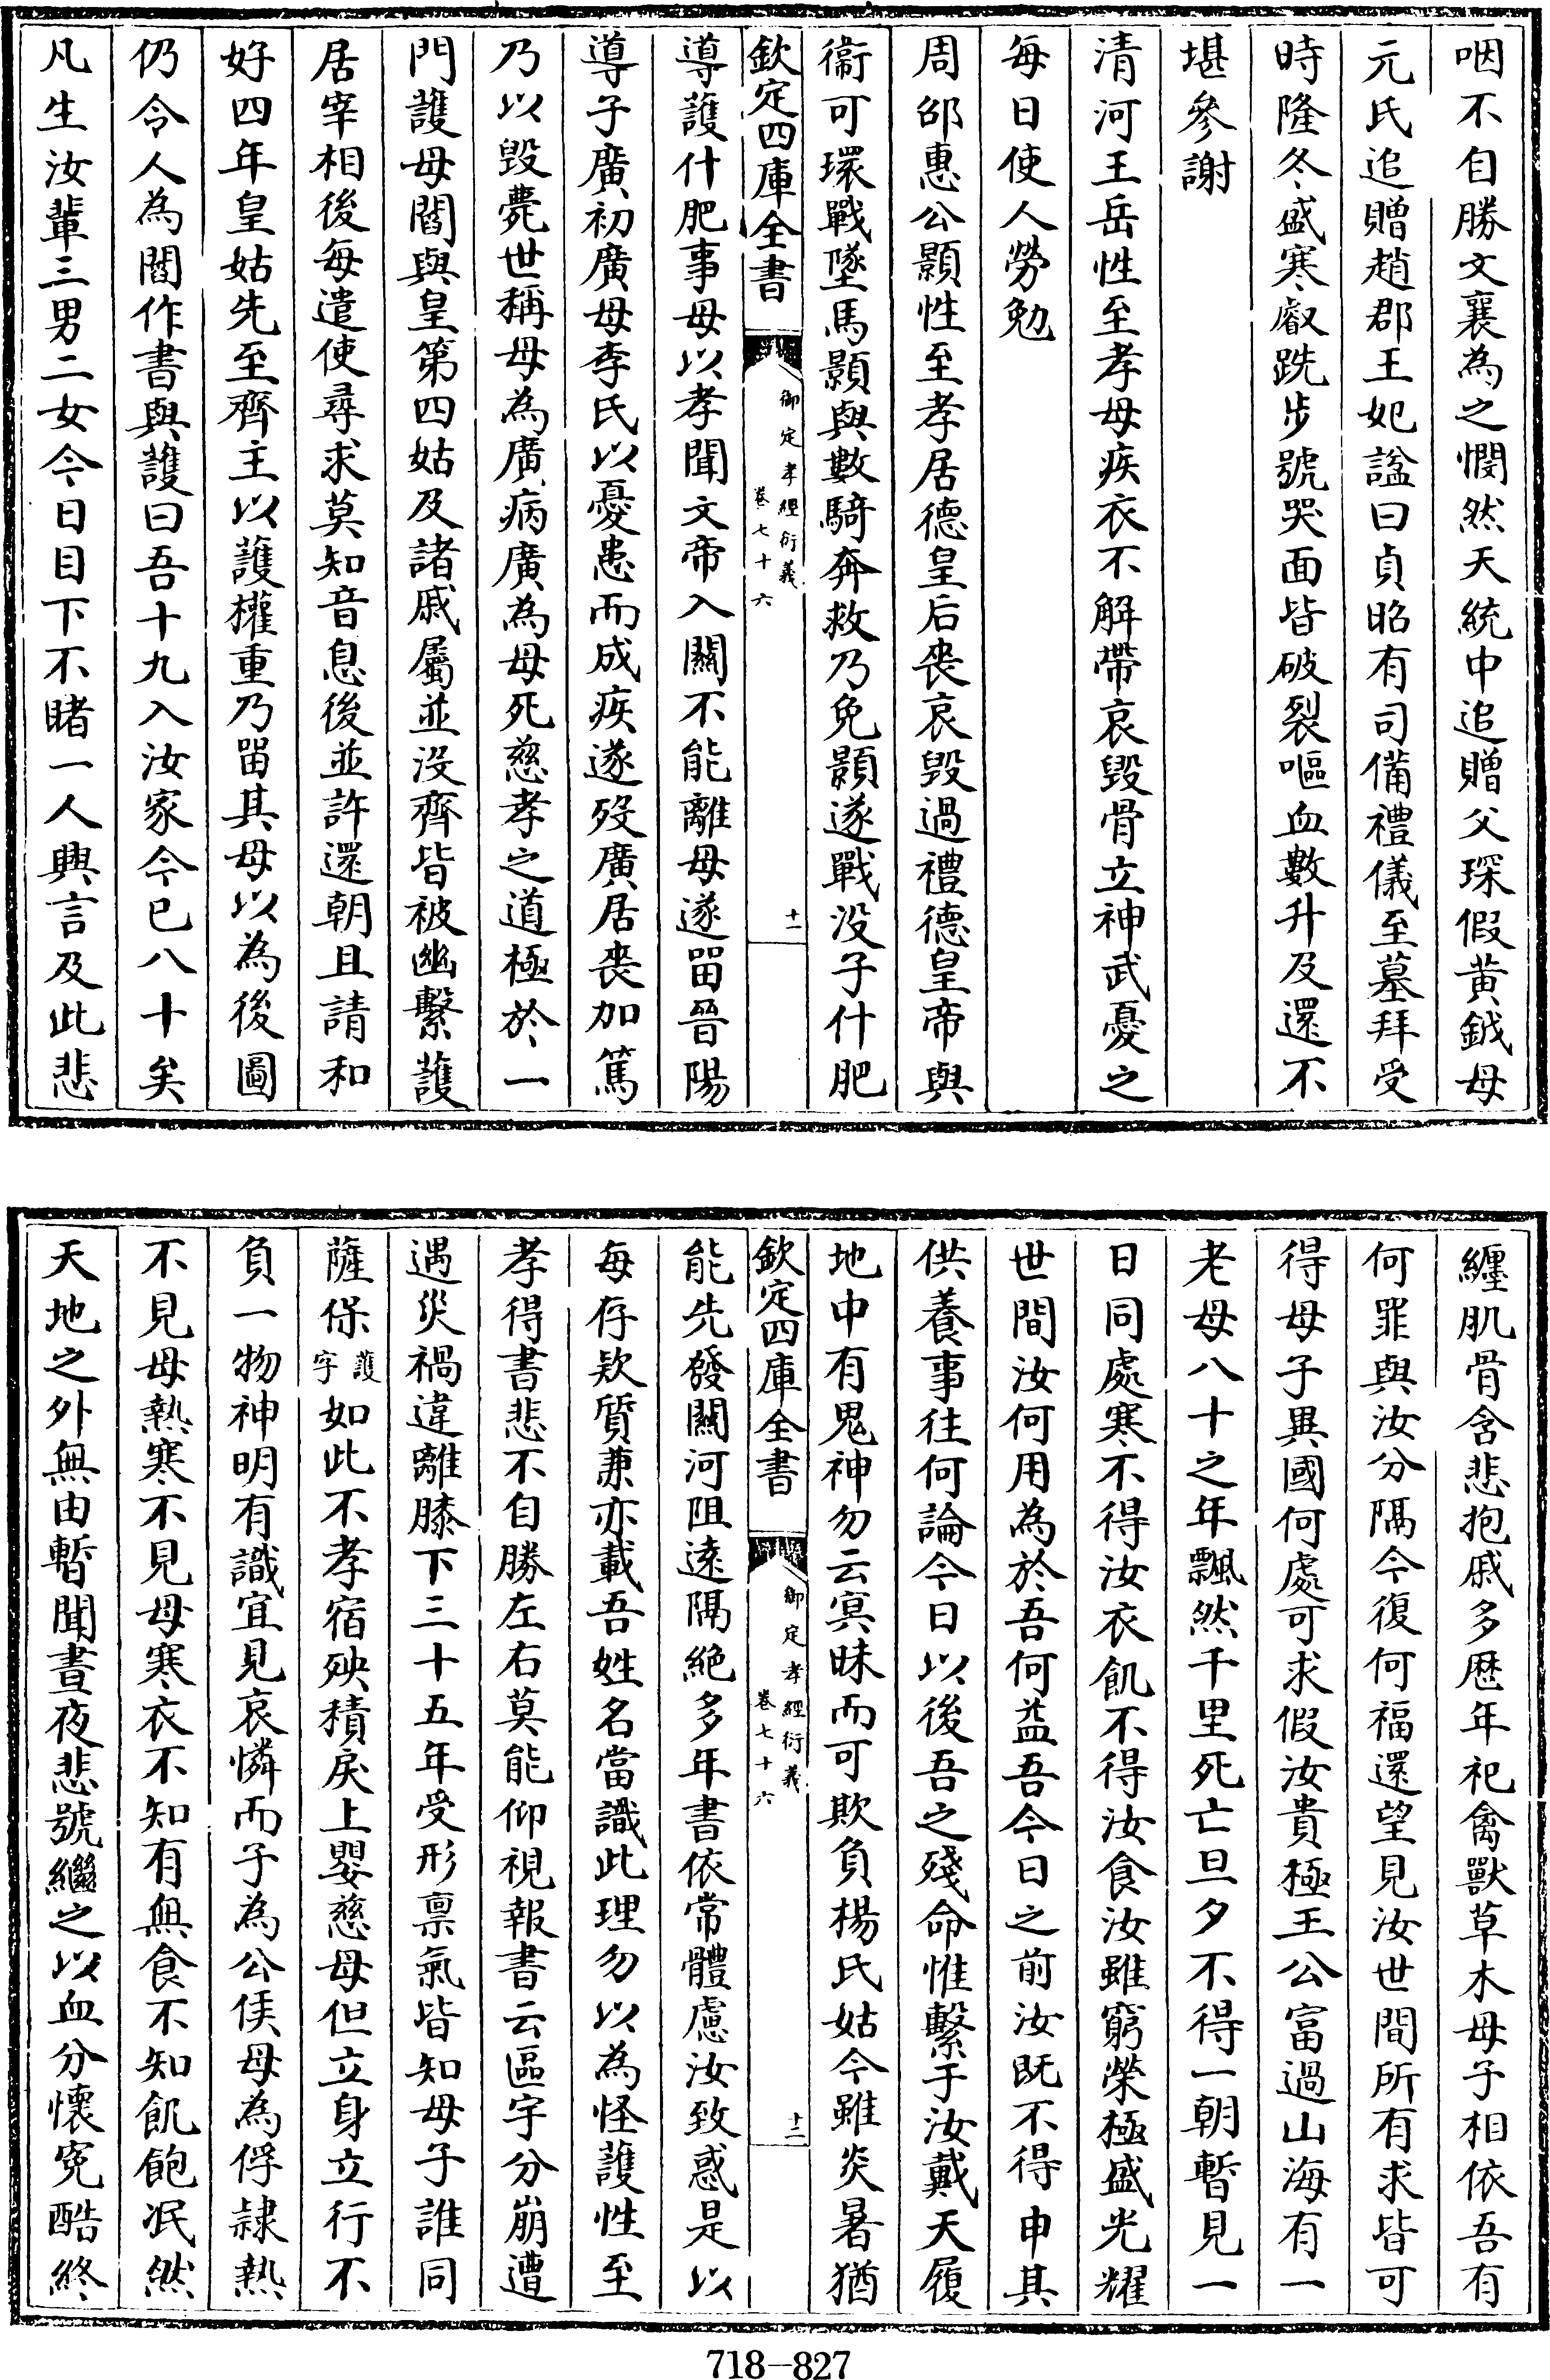 咽不自勝文襄為之憫然天統中追贈父琛假黄鉞母
元氏追贈趙郡王妃諡曰貞昭有司備禮儀至墓拜受
時隆冬盛寒叡跣步號哭面皆破裂嘔血數升及還不
堪參謝
清河王岳性至孝母疾衣不解帶哀毀骨立神武憂之
每日使人勞勉
周邵惠公顥性至孝居德皇后喪哀毀過禮德皇帝與
衞可瓌戰墜馬顥與數騎奔救乃免顥遂戰没子什肥
欽定四庫全書
御定孝經衍義
卷七十六
十一
導護什肥事母以孝聞文帝入關不能離母遂留晉陽
導子廣初廣母李氏以憂患而成疾遂歿廣居喪加篤
乃以毀薨世稱母為廣病廣為母死慈孝之道極於一
門護母閻與皇第四姑及諸戚屬並没齊皆被幽繫護
居宰相後每遣使尋求莫知音息後並許還朝且請和
好四年皇姑先至齊主以護權重乃留其母以為後圖
仍令人為閻作書與護曰吾十九入汝家今已八十矣
凡生汝輩三男二女今日目下不睹一人興言及此悲
纏肌骨含悲抱戚多歴年祀禽獸草木母子相依吾有
何罪與汝分隔今復何福還望見汝世間所有求皆可
得母子異國何處可求假汝貴極王公富過山海有一
老母八十之年飄然千里死亡旦夕不得一朝暫見一
日同處寒不得汝衣飢不得汝食汝雖窮榮極盛光耀
世間汝何用為於吾何益吾今日之前汝既不得申其
供養事往何論今日以後吾之殘命惟繫于汝戴天履
地中有鬼神勿云冥昧而可欺負楊氏姑今雖炎暑猶
欽定四庫全書
御定孝經衍義
卷七十六
十二
能先發關河阻遠隔絶多年書依常體慮汝致惑是以
每存欵質兼亦載吾姓名當識此理勿以為怪護性至
孝得書悲不自勝左右莫能仰視報書云區宇分崩遭
遇災禍違離膝下三十五年受形禀氣皆知母子誰同
薩保護字如此不孝宿殃積戾上嬰慈母但立身立行不
負一物神明有識宜見哀憐而子為公侯母為俘隷熱
不見母熱寒不見母寒衣不知有無食不知飢飽泯然
天地之外無由暫聞晝夜悲號繼之以血分懷寃酷終
718—827